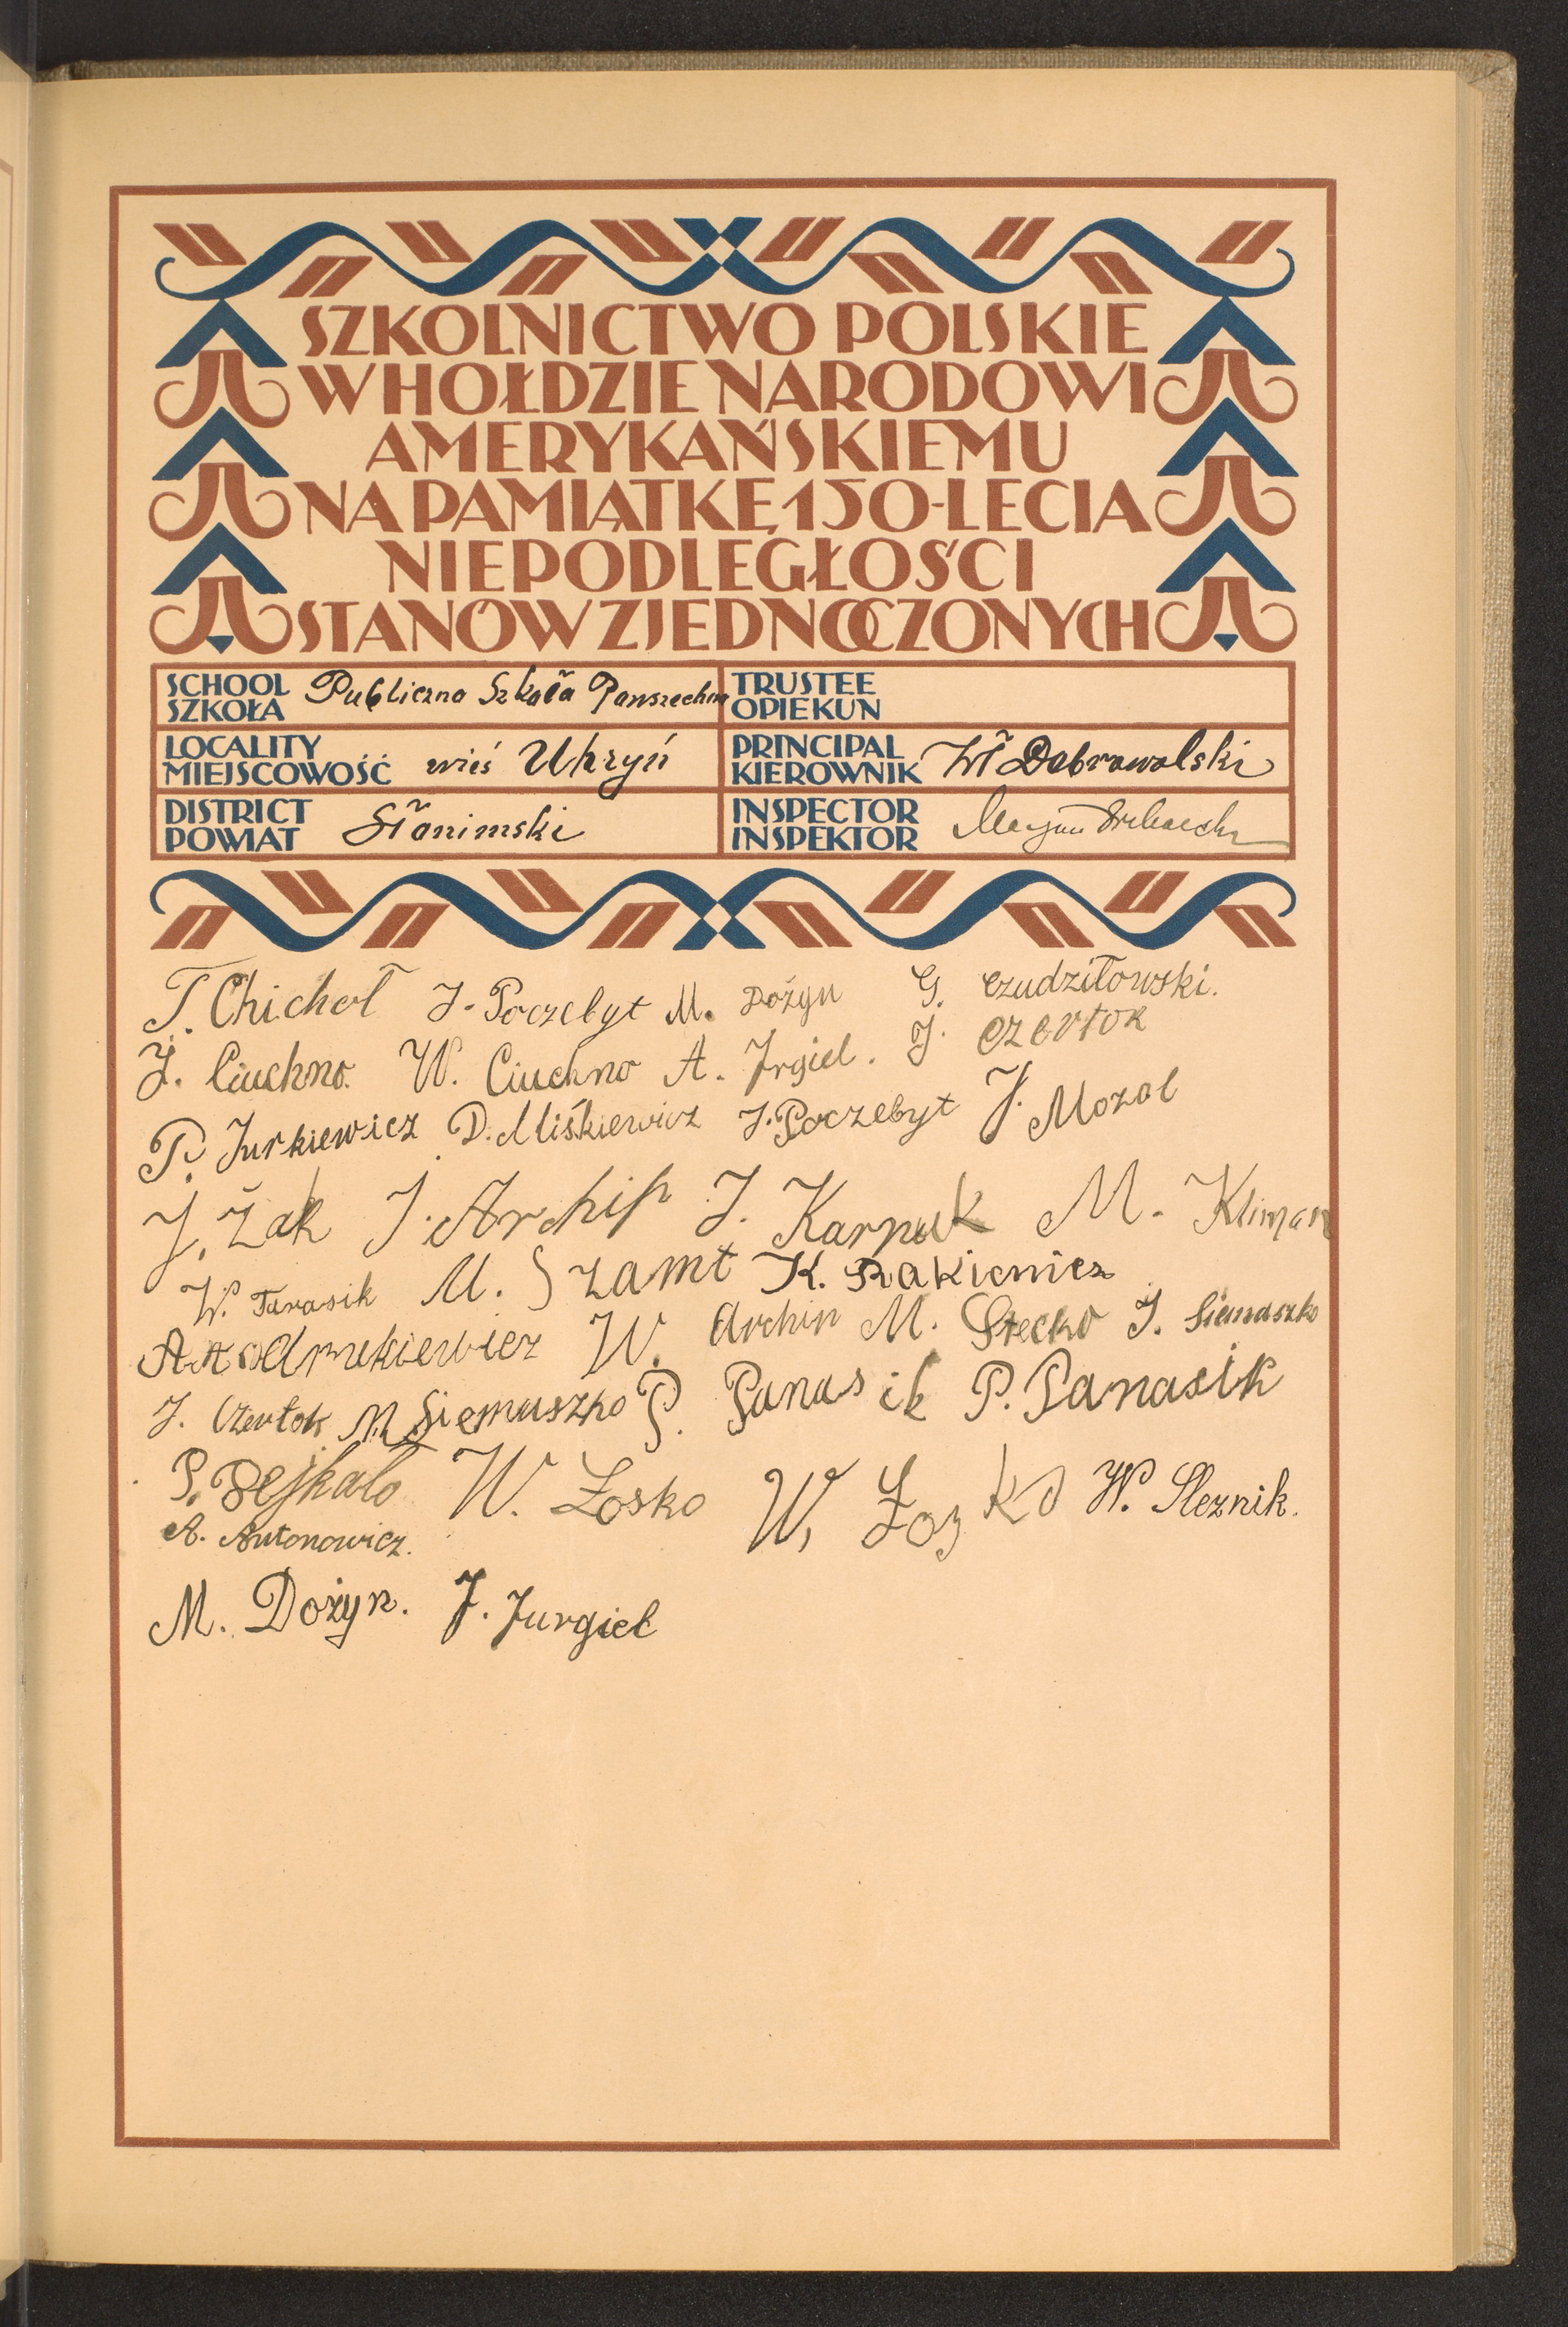 SZKOLNICTWO POLSKIE
W HOŁDZIE NARODOWI
AMERYKAŃSKIEMU
NA PAMIĄTKĘ 150-LECIA
NIEPODLEGŁOŚCI
STANÓW ZJEDNOCZONYCH
SCHOOL
SZKOŁA Publiczna Szkoła Powszechna
TRUSTEE
OPIEKUN
LOCALITY
MIEJSCOWOŚĆ wieś Uhryń
PRINCIPAL
KIEROWNIK Wł Dobrowolski
DISTRICT
POWIAT Słonimski
INSPECTOR
INSPEKTOR
T. Chichoł J. Poczebyt M. Dożyn G. Czudziłowski.
J. Ciuchno. W. Ciuchno A. Jrgiel. J. Czertok
P. Jurkiewicz D. Miśkiewicz J. Poczebyt J. Mozol
J. Żak J. Archip J. Karpuk M. Kliman
W. Tarasik M. Szamt K. Rakiewicz
W. Archip M. Stecko J. Siemaszko
J. Czertok M Siemaszko P. Panasik P. Panasik
P. W. Łosko W. Łozko W. Sleznik.
A. Antonowicz.
M. Dożyn. J. Jurgiel